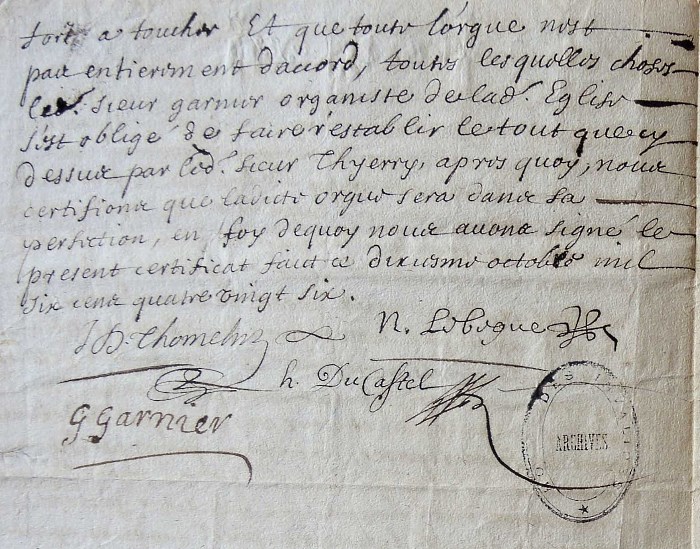 fort a toucher Et que toute l'orgue nest
pas entierement d'accord, toutes les quelles choses
led. sieur garnier organiste de lad. Eglise
s'est obligé de faire restablir le tout que cy
dessus par led. sieur Thyerry, apres quoy, nous
certifions que ladicte orgue sera dans sa
perfection, en foy dequoy nous avons signé le
present certificat faict ce dixiesme octobre mil
six cens quatre vingt six.
J D. Thomelin N. Lebegue
h. Du Castel
G Garnier
DES INVALIDES
ARCHIVES